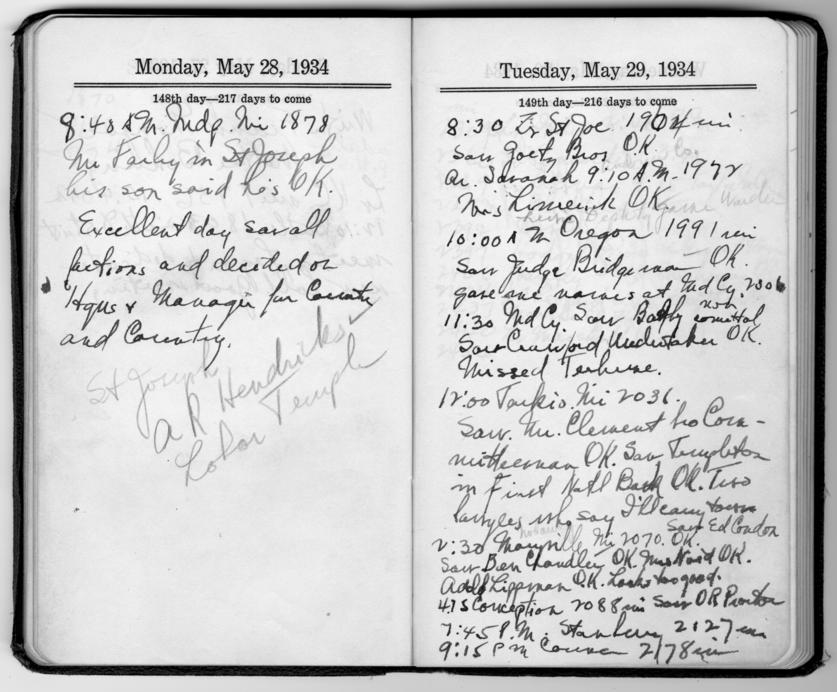 Monday, May 28, 1934
148th day—217 days to come
8:45 A.M. Mdp. Mi 1878
Mr. Farley in St Joseph
his son said he's OK.
Excellent day saw all
factions and decided on
Hqus & Manager for County
and Country.
St Joseph
A R Hendricks
Labor Temple
Tuesday, May 29, 1934
149th day—216 days to come
8:30 Lv St Joe 1904 mi
Saw Goetz Bros OK.
Ar. Savanah 9:10 A.M. 1972
Mrs Limerick OK.
10:00 A M Oregon 1991 mi
Saw Judge Bridgeman OK.
gave me names at Md Cy. 2306
11:30 Md Cy. Saw non comittal
Saw Crawford Undertaker OK.
Missed Terhune.
12:00 Tarkio. Mi 2036.
Saw. Mr. Clement Co Com-
mitteeman OK. Saw Templeton
in First Natl Bank OK. Two
lawyers who say I'll carry town
Saw Ed Condon
2:30 Maryville Mi 2070. OK.
Saw Ben Chandley OK. Mrs Ward OK.
Adolf Lippman O.K. Looks too good.
4:15 Conception 2088 mi Saw O R Proctor
7:45 P.M. Stanberry 2127 mi
9:15 P M 2178 mi